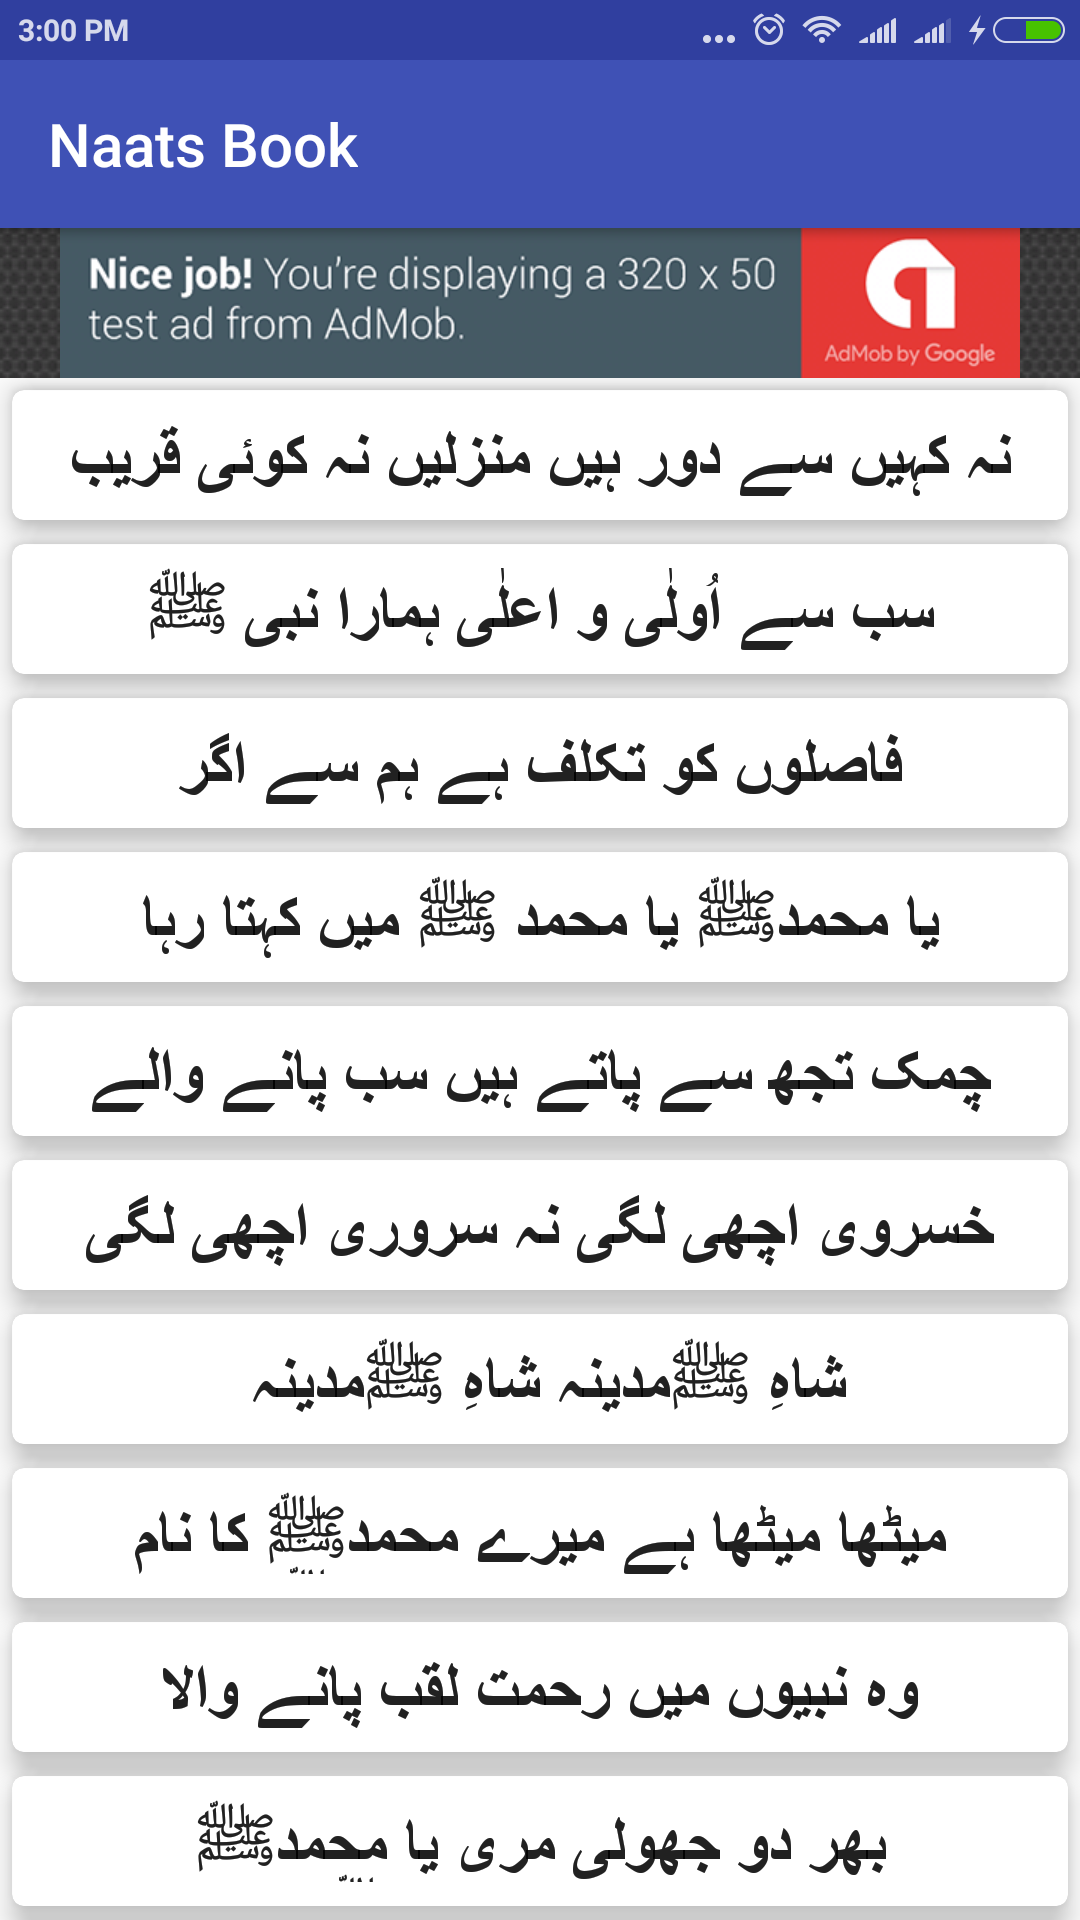 3:00 PM
Naats Book
Nice job! You're displaying a 320 x 50
test ad from AdMob.
AdMob by Google
نہ کہیں سے دور ہیں منزلیں نہ کوئی قریب
سب سے اُولٰی و اعلٰی ہمارا نبی ﷺ
فاصلوں کو تکلف ہے ہم سے اگر
یا محمدﷺ یا محمد ﷺ میں کہتا رہا
چمک تجھ سے پاتے ہیں سب پانے والے
خسروی اچھی لگی نہ سروری اچھی لگی
شاہِ ﷺمدینہ شاہِ ﷺمدینہ
میٹھا میٹھا ہے میرے محمدﷺ کا نام
وہ نبیوں میں رحمت لقب پانے والا
بھر دو جھولی مری یا محمدﷺ